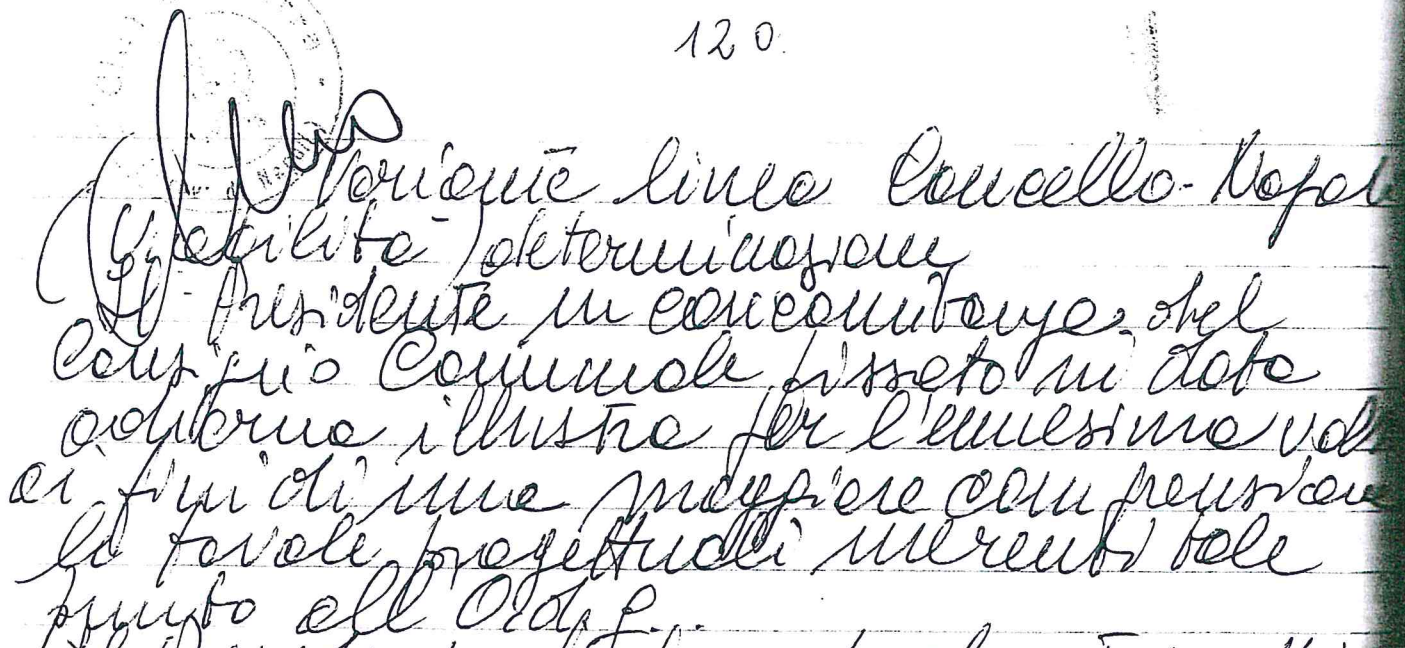 120.
Variante linea Cancello-Napol
(Viabilità) determinazioni
Il Presidente in concomitanza del
Consiglio Comunale fissato in data
odierna illustra per l'ennesima volt
ai fini di una maggiore comprensione
le tavole progettuali inerenti tale
punto all'O.d.g..